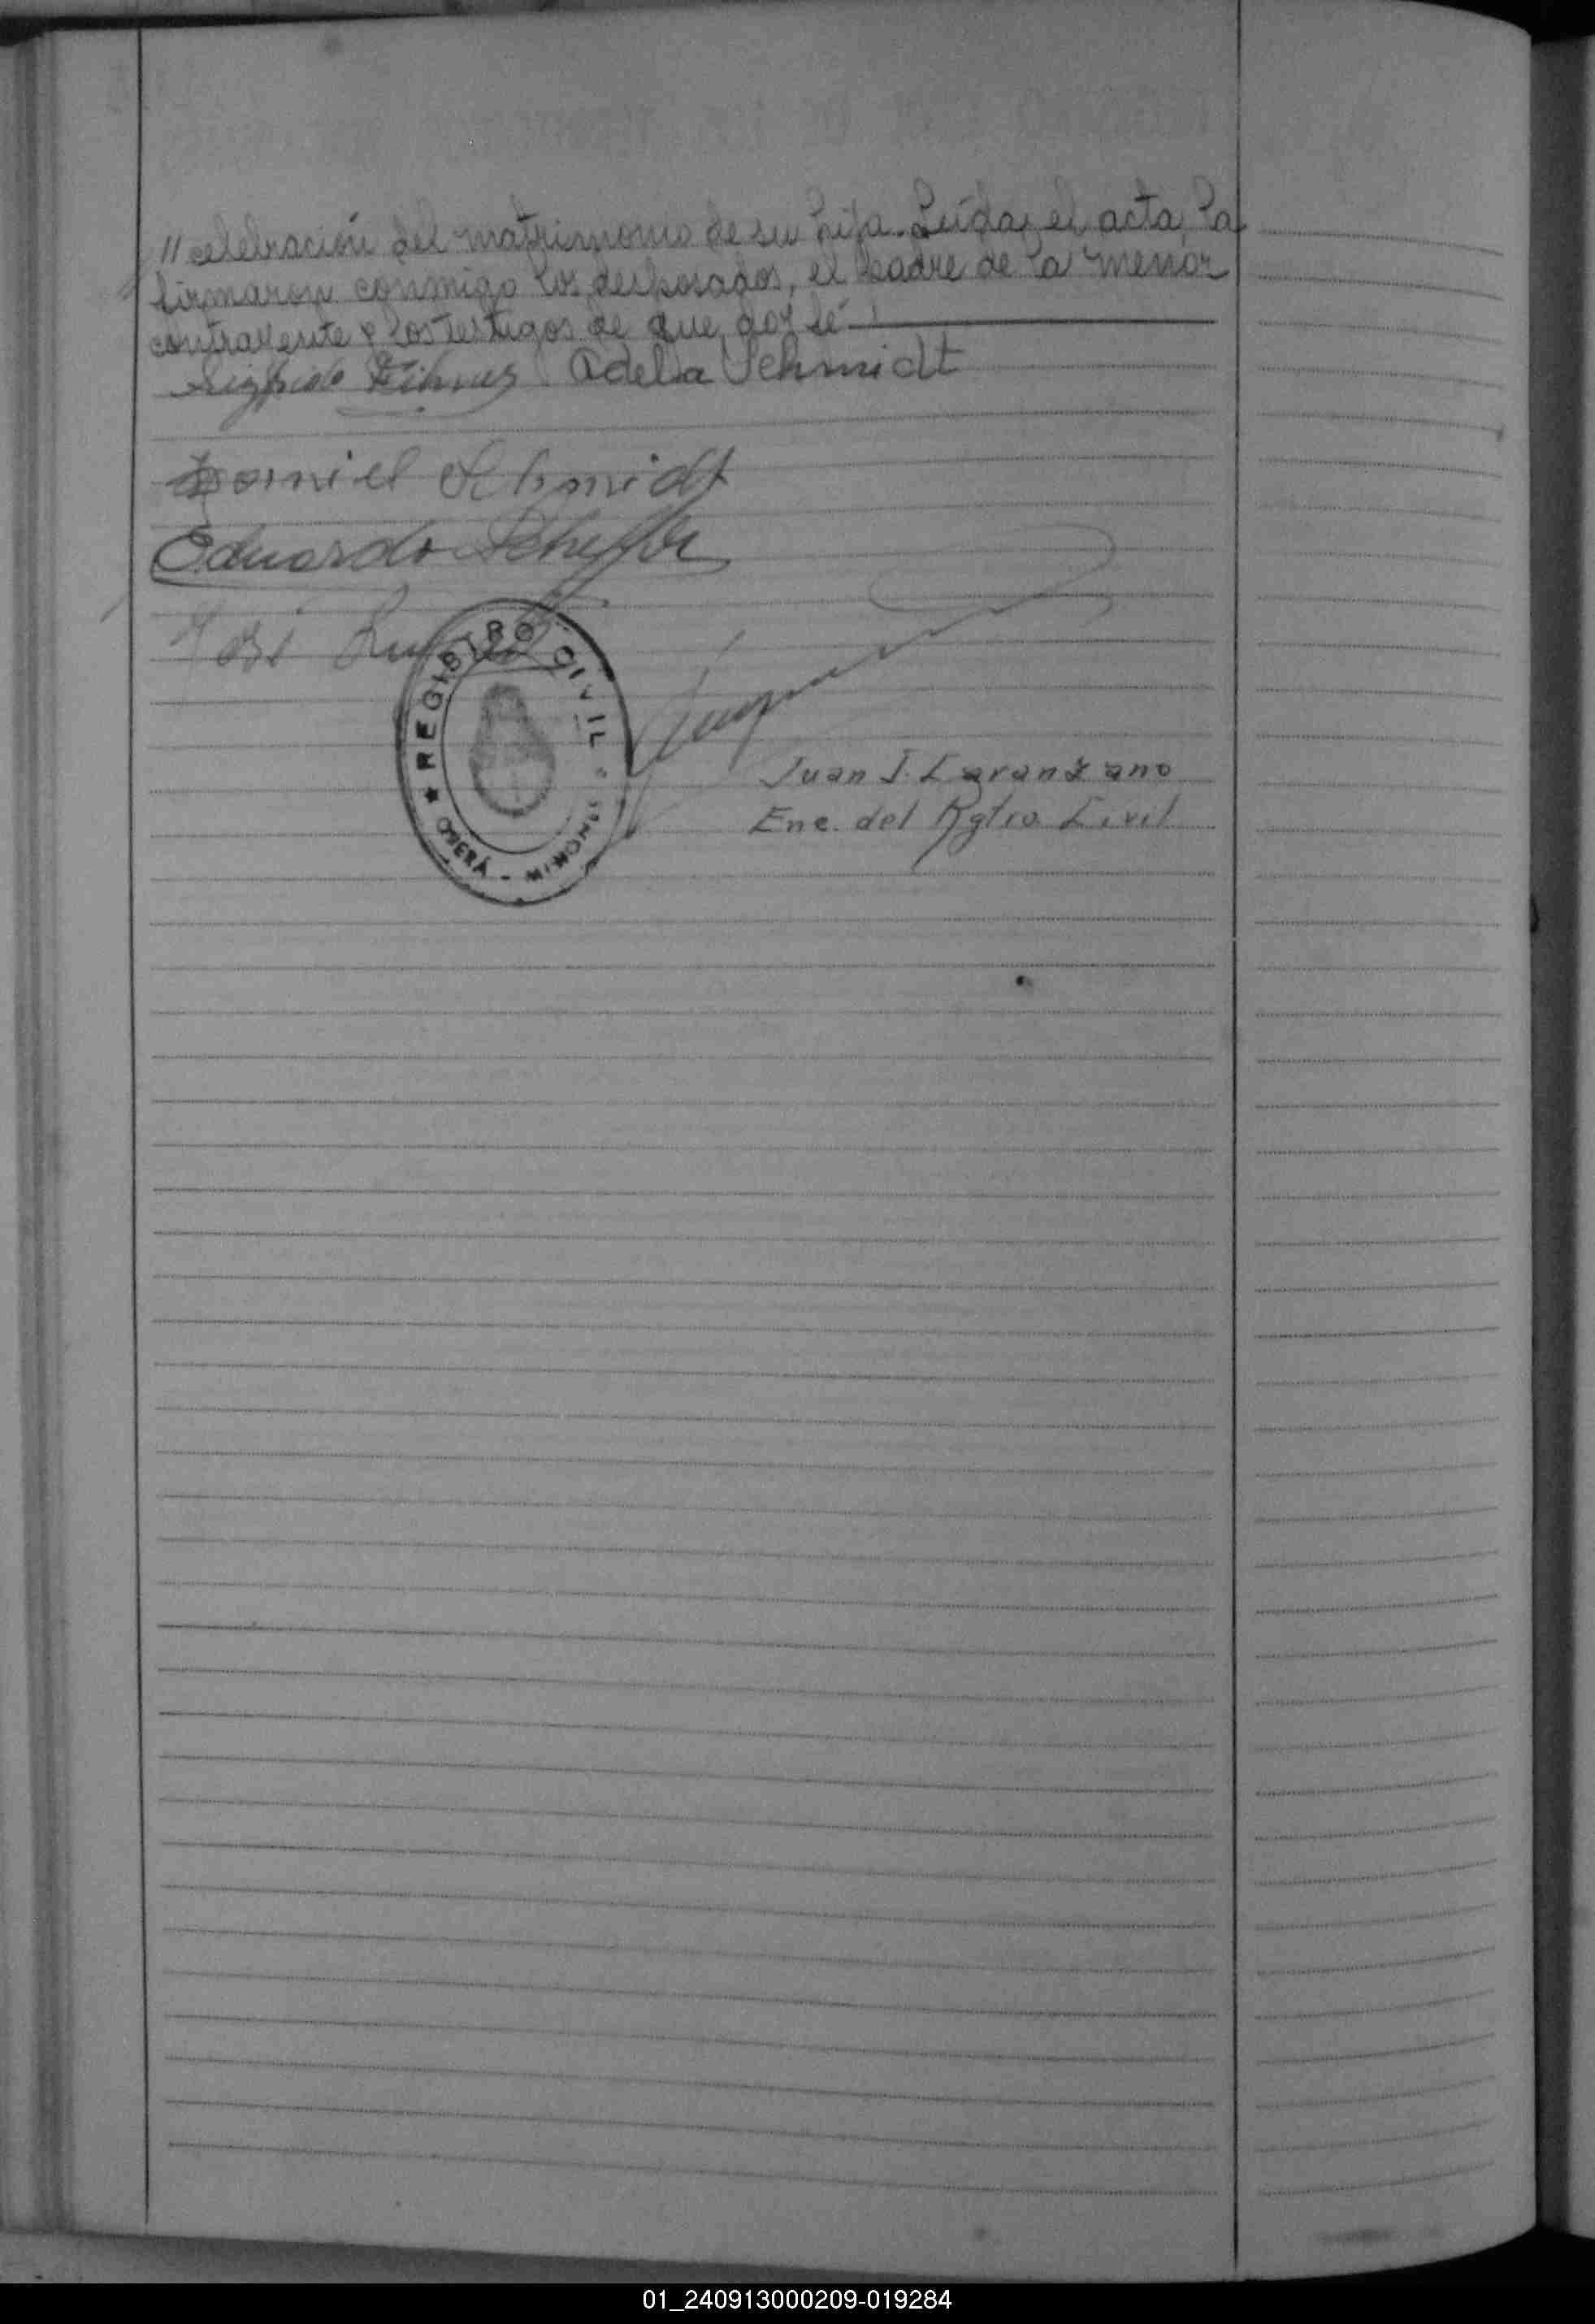 // celebración del matrimonio de su hija. Leída el acta, la
firmaron conmigo los desposados, el padre de la menor
contrayente y los testigos de que doy fé
Adelia Schmidt
Daniel Schmidt
Eduardo
José
REGISTRO CIVIL
OBERÁ - MISIONES
Juan J. Laranzano
Enc. del Rgtro Civil
01_240913000209-019284